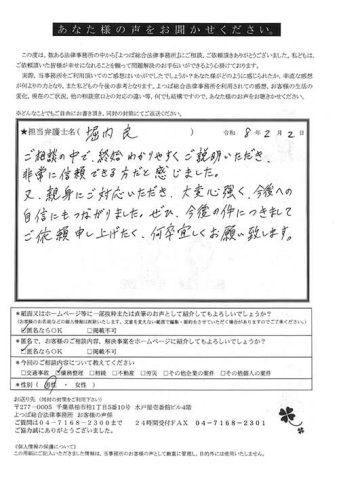 あなた様の声をお聞かせください。
この度は、数ある法律事務所の中から『よつば総合法律事務所』にご相談、ご依頼頂きありがとうございました。私どもは、
ご依頼頂いた皆様が幸せになれることを願って問題解決のお手伝いができるよう心掛けております。
実際、当事務所をご利用頂いてのご感想はいかがでしたでしょうか?あなた様がどのように感じられたか、率直な感想
が何よりの力となり、また私どもの今後の参考となります。よつば総合法律事務所を利用されての感想、お客様の生活の
変化、現在のご状況、他の相談窓口との対応の違い等、何でも結構ですので、あなた様のお声をお聴かせください。
※どんなことでもご自由にお書き頂き、同封の封筒にてご返送ください。
★担当弁護士名( 堀内 良 ) 令和 8年 2月 2日
ご相談の中で、終始わかりやすくご説明いただき、
非常に信頼できる方だと感じました。
又、親身にご対応いただき、大変心強く、今後への
自信にもつながりました。ぜひ、今後の件につきまして
ご依頼申し上げたく、何卒宜しくお願い致します。
*紙面又はホームページ等に一部抜粋または直筆のお声として紹介してもよろしいでしょうか?
(お客様のお名前などの個人情報は削除いたします。文意を変えない範囲で編集・要約をさせていただく場合がありますのでご了承ください。)
☑匿名ならOK □掲載不可
*匿名で、お客様のご相談内容、解決事案をホームページに紹介してもよろしいでしょうか?
☑匿名ならOK □掲載不可
*今回のご相談内容について教えてください
□交通事故 ☑債務整理 □相続 □不動産 □労災 □その他企業の案件 □その他個人の案件
*性別( 男性 ・ 女性 )
お送り先 (同封の封筒をご利用下さい)
〒277-0005 千葉県柏市柏1丁目5番10号 水戸屋壱番館ビル4階
よつば総合法律事務所 お客様の声係
ご質問は04-7168-2300まで 24時間受付FAX 04-7168-2301
ご協力誠にありがとうございました。
《個人情報の保護について》
この用紙にご記入いただきました情報は、当事務所のお客様の声として厳重に管理し、目的外には使用いたしません。